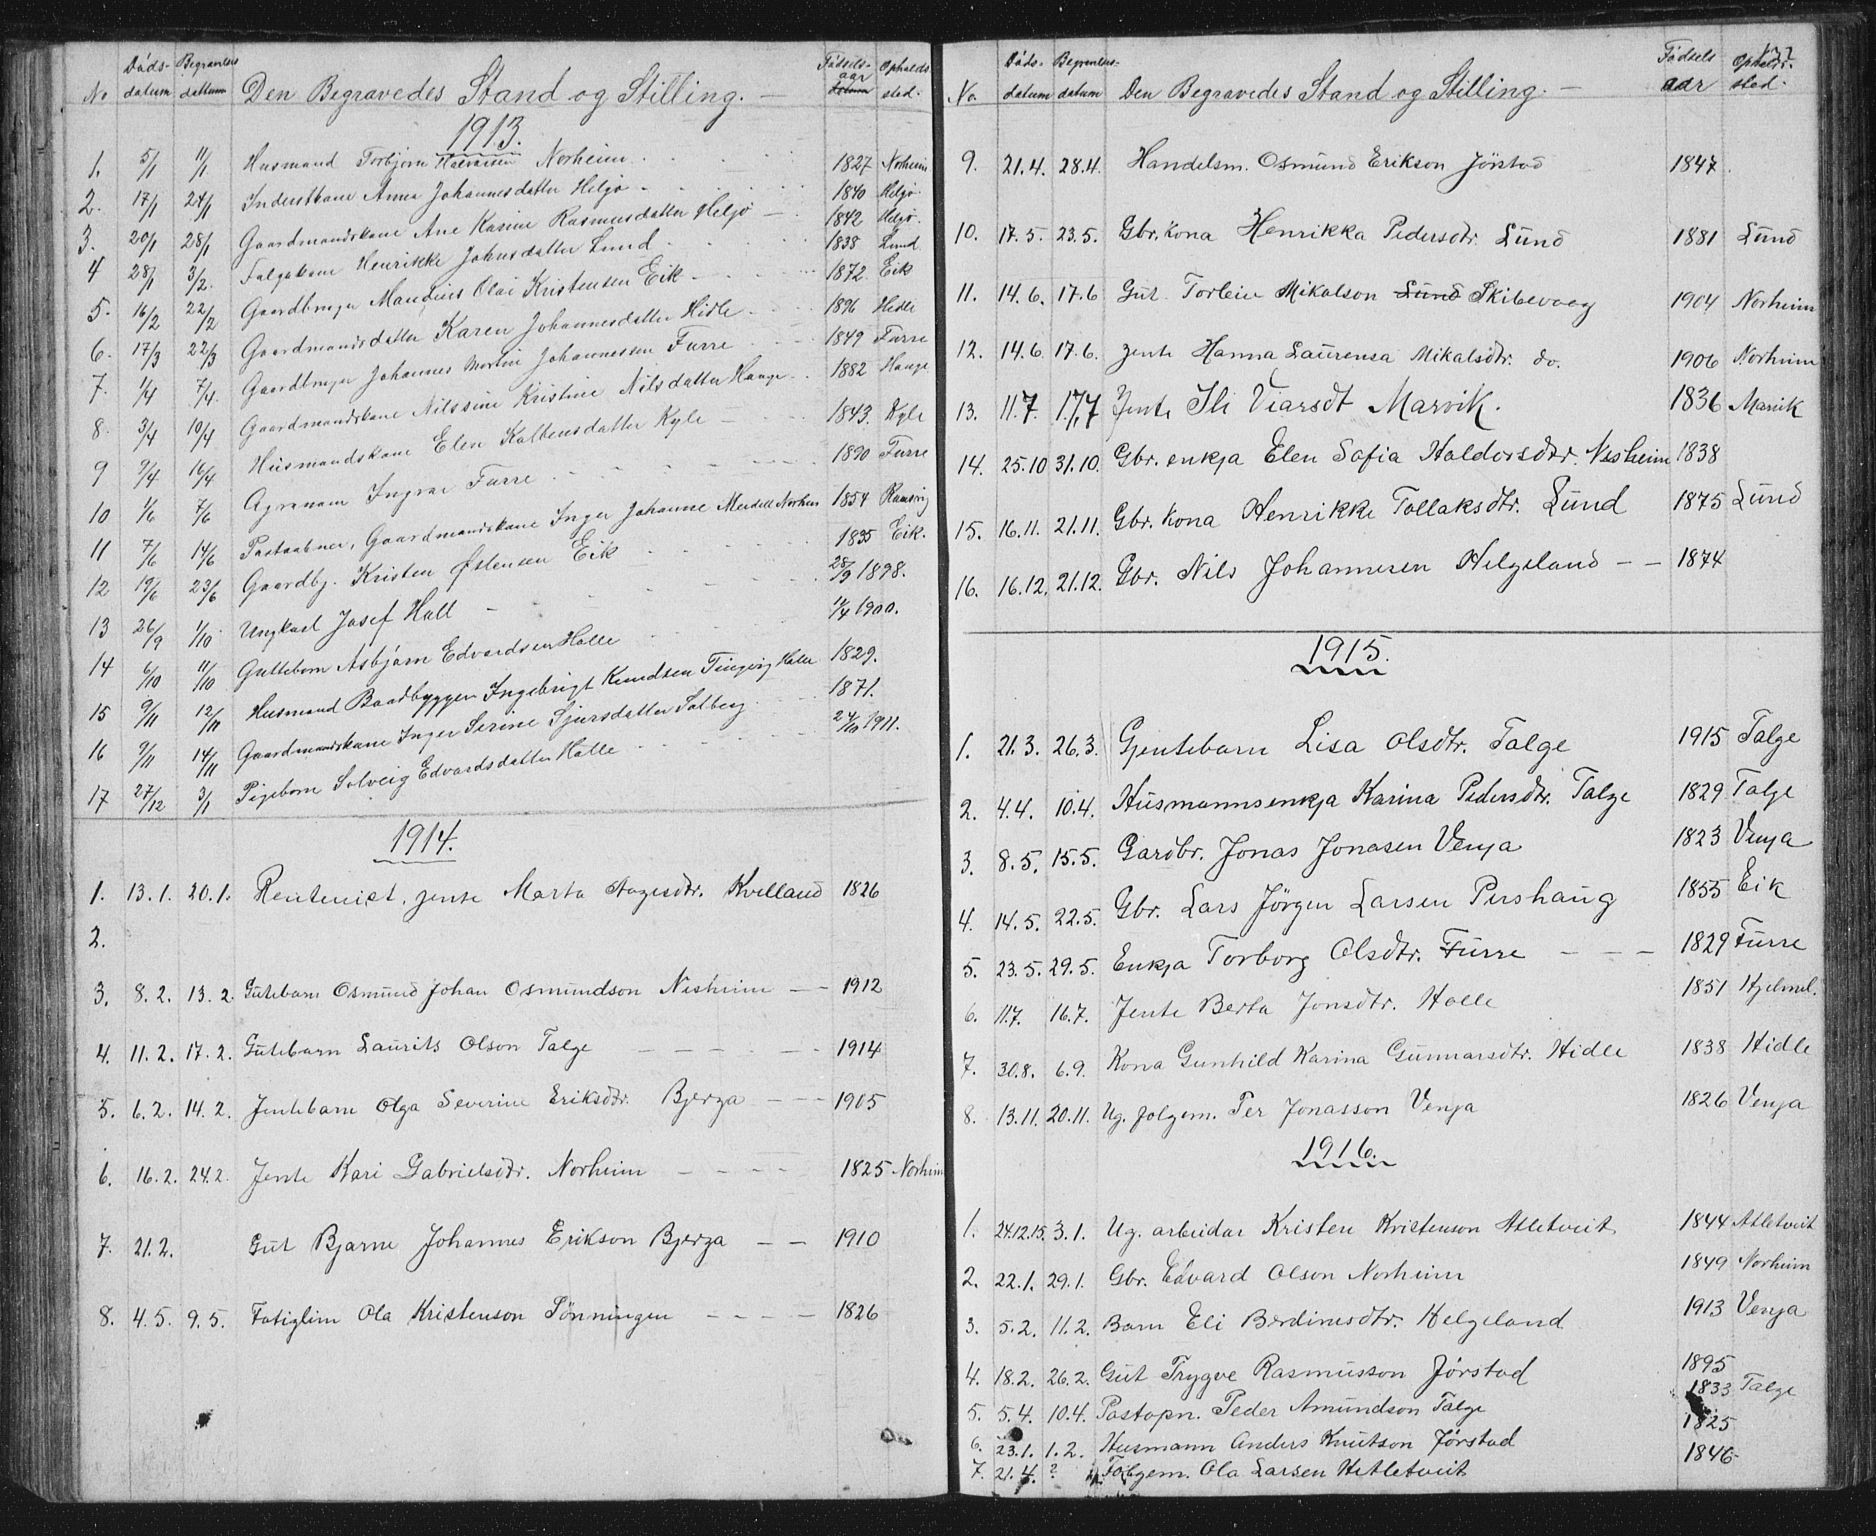 No Döds-datum Begravelses dattum Den Begravedes Stand og Stilling. — Fødsels-aar Opholds sted.
1913.
1. 5/1 11/1 Husmand Torbjørn Halvorsen Norheim 1827 Norheim
2. 17/1 24/1 Inderstkane Anna Johannesdatter Heljø 1840 Heljø.
3. 20/1 28/1 Gaardmandskane Ane Kasine Rasmusdatter Heljø 1842 Heljø.
4 28/1 3/2. Folgakane Henrikke Johnsdatter Lund 1838 Lund
5. 16/2 22/2 Gaardbruger Mandius Olai Kristensen Eik 1872 Eik
6. 17/3 22/3 Gaardmandsdatter Karen Johannesdatter Hidle 1896 Hidle
7. 1/4 7/4. Gaardbruger Johannes Martin Johannessen Furre 1849 Furre
8. 3/4 10/4 Gaardmandskane Nilssine Kristine Nilsdatter Hauge 1882 Hauge
9 9/4 16/4 Husmandskane Elen Kolbensdatter Kyle 1843. Kyle
10 1/6 7/6 Agronom Ingvar Furre 1890 Furre
11 7/6 14/6 Postaabner, Gaardmandskane Inger Johanne Meidell Norheim 1854 Ramsvig
12 19/6 23/6 Gaardbj. Kristen Østensen Eik 1835 Eik.
13 26/9 1/10 Ungkarl Josef Hall 28/9 1898.
14 6/10 11/10 Guttebørn Asbjørn Edvardsen Halle 11/4 1900.
15 9/11 12/11 Husmand Baadbygger Ingebrigt Knudsen Tingvig Halle 1829.
16 9/11 14/11 Gaardmandskane Inger Serine Sjursdatter Solberg 1871.
17 27/12 3/1 Pigebørn Solveig Edvardsdatter Halle 24/10 1911.
1914.
1. 13.1. 20.1. Rentenist, jente Marta Aagesdtr. Kvelland 1826
2.
3. 8.2. 13.2. Gutebarn Osmund Johan Osmundson Nesheim 1912
4. 11.2. 17.2. Gutebarn Laurits Olson Talge 1914
5. 6.2. 14.2. Jentebarn Olga Severine Eriksdtr. Bjerga 1905
6. 16.2. 24.2. Jente Kari Gabrielsdtr. Norheim 1825 Norheim
7. 21.2. Gut Bjarne Johannes Erikson Bjerga 1910
8. 4.5. 9.5. Fatiglim Ola Kristenson Tönningen 1826
No. Döds-datum Begravelses-datum Den Begravedes Stand og Stilling. — Födsels aar Opholds sted.
9. 21.4. 28.4. Handelsm. Osmund Erikson Jörstad 1847
10. 17.5. 23.5. Gbr. kona Henrikka Pedersdtr. Lund 1881 Lund
11. 14.6. 17.6 Gut Torleiv Mikalson Lund Skibevaag 1904 Norheim
12. 14.6 17.6. Jente Hanna Laurensa Mikalsdtr. do. 1906 Norheim
13. 11.7. 17.7 Jente Ili Viarsdt Marvik. 1836 Marvik
14. 25.10 31.10. Gbr. enkja Elen Sofia Haldorsdtr. Nesheim 1838
15. 16.11. 21.11. Gbr. kona Henrikke Tollaksdtr. Lund 1875 Lund
16. 16.12. 21.12. Gbr. Nils Johannesen Helgeland 1874
1915.
1. 21.3. 26.3. Gjentebarn Lisa Olsdtr. Talge 1915 Talge
2. 4.4. 10.4. Husmannsenkja Karina Pedersdtr. Talge 1829 Talge
3. 8.5. 15.5. Gardbr. Jonas Jonasen Venja 1823 Venja
4. 14.5. 22.5. Gbr. Lars Jörgen Larsen Pershaug 1855 Eik
5. 23.5. 29.5. Enkja Torborg Olsdtr. Furre 1829 Furre
6. 11.7. 16.7. Jente Berta Jonsdtr. Halle 1851 Hjelmel.
7. 30.8. 6.9. Kona Gunhild Karina Gunnarsdtr. Hidle 1838 Hidle
8. 13.11. 20.11. Ug. folgem. Per Jonasson Venja 1826 Venja
1916.
1. 24.12.15. 3.1. Ug. arbeidar Kristen Kristenson Atletveit 1844 Atletveit
2. 22.1. 29.1. Gbr. Edvard Olson Norheim 1849 Norheim
3. 5.2. 11.2. Barn Eli Berdinesdtr. Helgeland 1913 Venja
4. 18.2. 26.2. Gut Trygve Rasmusson Jörstad 1895
5. 5.4. 10.4. Postopn. Peder Amundson Talge 1833 Talge
6. 23.1. 1.2. Husmann Anders Knutson Jörstad 1825
7. 21.4. ? Folgem. Ola Larsen Hetletveit 1846